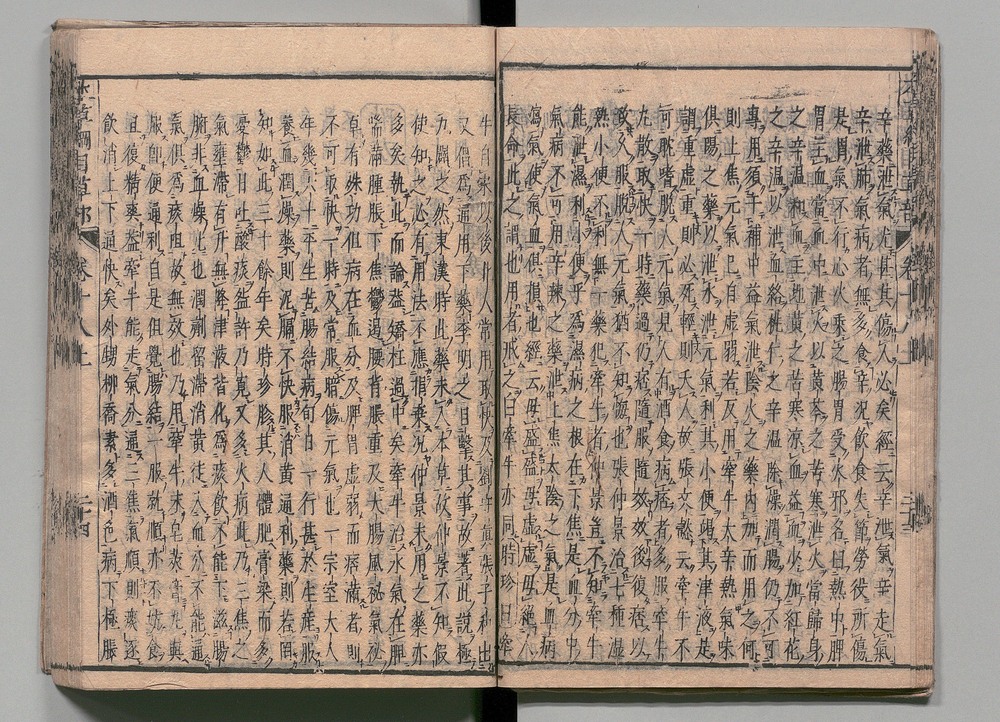 辛藥泄氣尤甚其傷人必矣經云辛泄氣辛走氣
辛泄肺氣病者無多食辛況飲食失節勞役所傷
是胃氣不行心火乘之腸胃受火邪名曰熱中脾
胃主血當血中泄火以黄芩之苦寒泄火當歸身
之辛温和血生地黄之苦寒凉血益血少加紅花
之辛温以泄血絡桃仁之辛温除燥潤腸仍不可
專用須於補中益氣泄陰火之藥内加而用之何
則上焦元氣已自虚弱若反用牽牛大辛熱氣味
俱陽之藥以泄水泄元氣利其小便竭其津液是
謂重虚重則必死輕則夭人故張文懿云牽牛不
可耽嗜脱人元氣見人有酒食病痞者多服牽牛
丸散取快一時藥過仍痞隨服隨效效後復痞以
致久服脱人元氣猶不知悔也張仲景治七種湿
熱小便不利無一藥犯牽牛者仲景豈不知牽牛
能泄濕利小便乎爲濕病之根在下焦是血分中
氣病不可用辛辣之藥泄上焦太陰之氣是血病
瀉氣使氣血俱損也經云毋盛盛毋虚虚毋絶人
長命此之謂也用者戒之白牽牛亦同時珍曰牽
牛自宋以後北人常用取快及劉守真張子和出
又倡爲通用下藥李明之目擊其事故著此說極
力闢之然東漢時此藥未入本草故仲景不知假
使知之必有用法不應捐棄況仲景未用之藥亦
多矣執此而論蓋矯枉過中矣牽牛治水氣在脾
喘滿腫脹下焦鬱遏腰背脹重及大腸風祕氣祕
卓有殊功但病在血分及脾胃虚弱而痞滿者則
不可取快一時及常服暗傷元氣也一宗室夫人
年幾六十平生苦腸結病旬日一行甚於生産服
養血潤燥藥則泥膈不快服消黄通利藥則若罔
知如此三十餘年矣時珍診其人體肥膏粱而多
憂鬱日吐酸痰盌許乃寬又多火病此乃三焦之
氣壅滯有升無降津液皆化爲痰飲不能下滋腸
腑非血燥比也潤劑留滯消黄徒入血分不能通
氣俱爲痰阻故無效也乃用牽牛末皂莢膏丸與
服即便通利自是但覺腸結一服就順亦不妨食
且復精爽蓋牽牛能走氣分通三焦氣順則痰逐
飲消上下通快矣外甥柳喬素多酒色病下極脹
本草綱目草部 卷十八上 二十四